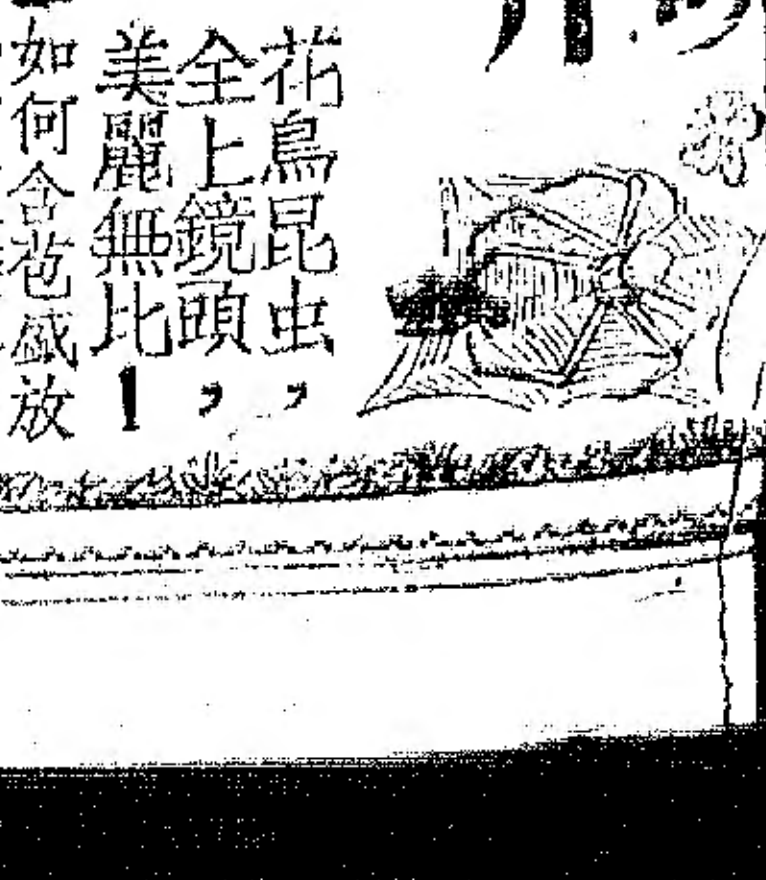 花鳥昆虫，
全上鏡頭，
美麗無比！
如何含苞盛放